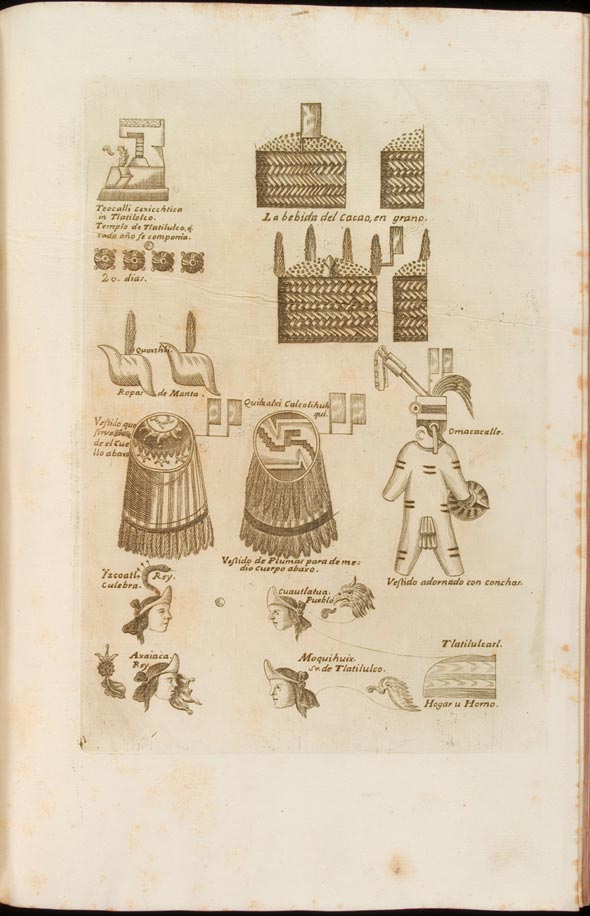 Teocalli
in Tlatilolco.
Templo de Tlatilulco, q.
cada año se componia.
La bebida del Cacao, en grano.
20. dias.
Ropas de Manta.
Vestido que
sirve
de el Cue
llo abaxo
Quilxalxi Calcolihuh
qui.
Omacacalle.
Vestido de Plumas para de me-
dio Cuerpo abaxo.
Vestido adornado con conchas.
Yzcoatl. Rey.
Culebra.
Cuautlatua.
Pueblo
Axaiaca.
Rey
Moquihuix.
Sr. de Tlatilulco.
Tlatilulcatl.
Hogar u Horno.